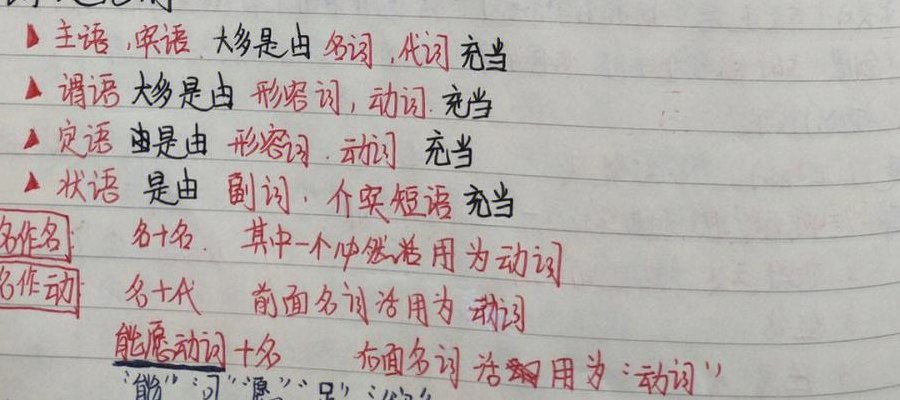 ▲主语,宾语.大多是由名词,代词充当
▲谓语大多是由形容词,动词.充当
▲定语由是由形容词.动词充当
▲状语是由副词.介宾短语充当
名作名: 名+名. 其中一个必然活用为动词
名作动: 名+代 前面名词活用为动词
能愿动词+名 右面名词活用为“动词”
"能" "可" "愿"